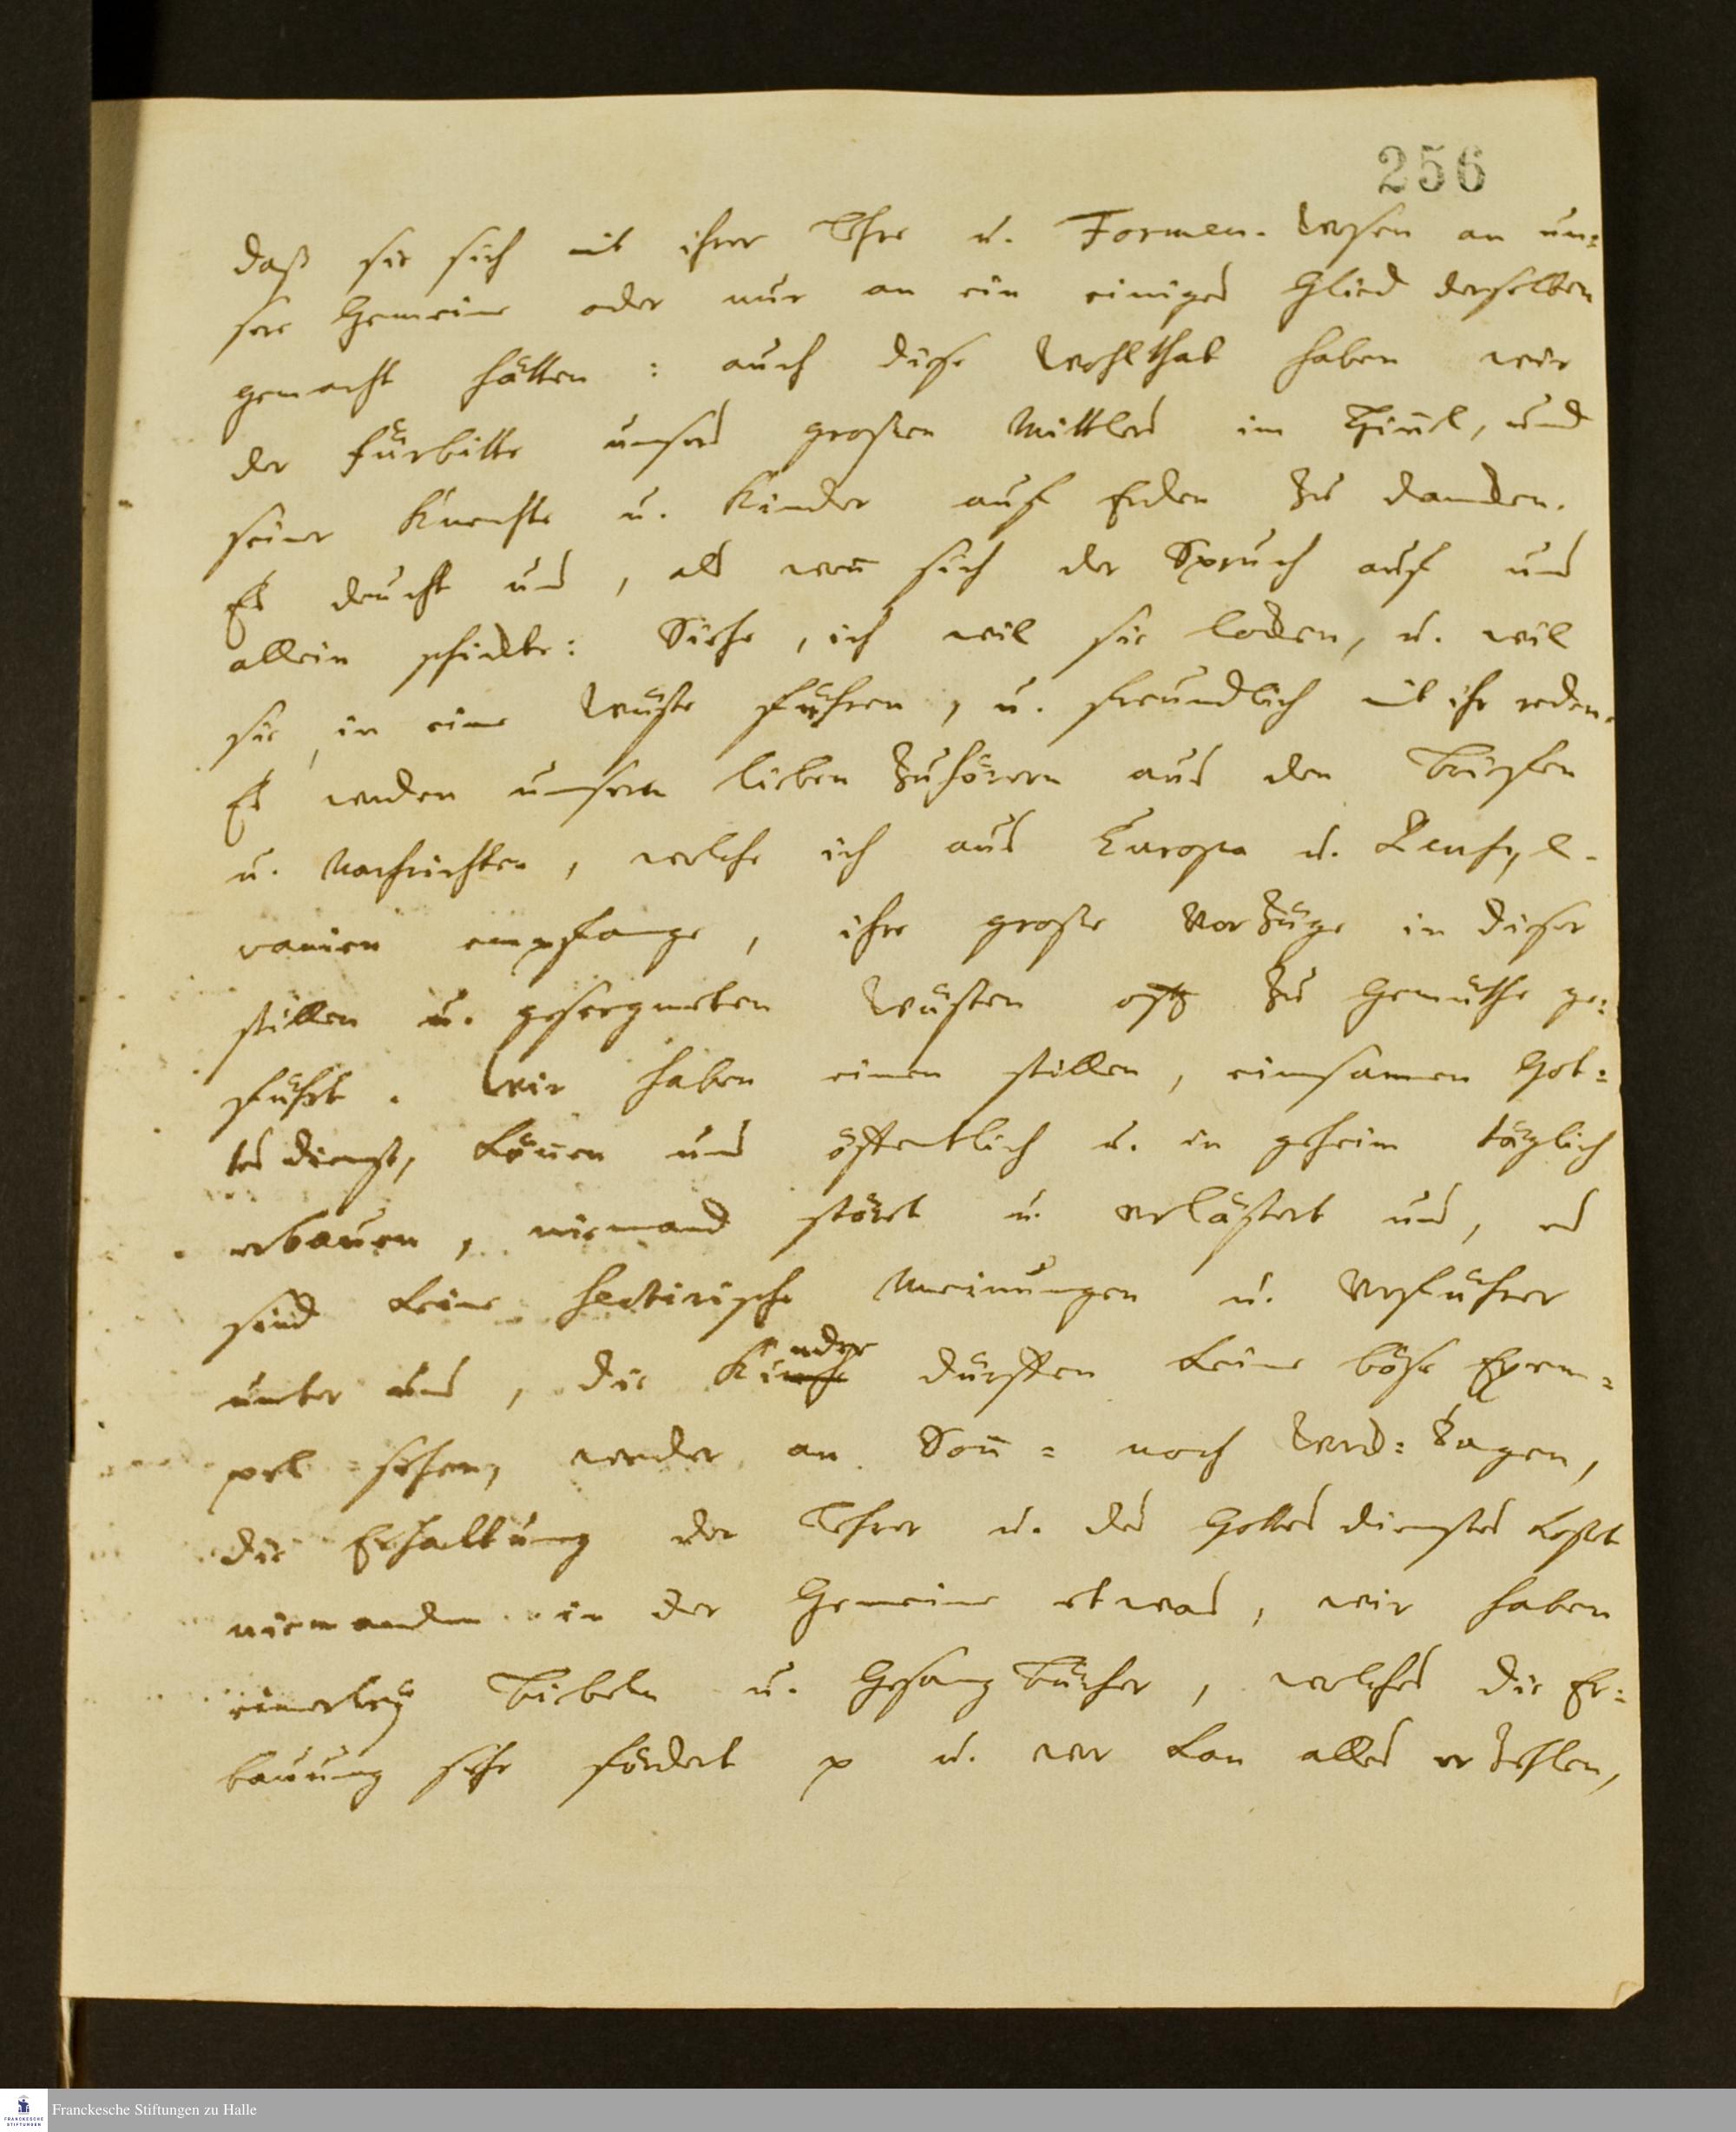 256
daß sie sich mit ihrer Lehre u. Formen-Wesen an un=
sere Gemeine oder nur an ein einiges Glied derselben
gemacht hätten: auch diese Wohlthat haben wir
der Fürbitte unsers großen Mittlers im Him̅el, und
seiner Knechte u. Kinder auf Erden zu dancken.
Es deucht uns, als wen̅ sich der Spruch auf uns
allein schickte: Siehe, ich wil sie locken, u. wil
sie in eine Wüste führen, u. freundlich mit ihr reden.
Es werden unsern lieben Zuhörern aus den Briefen
u. Nachrichten, welche ich aus Europa u. Pensyl-
vanien empfange, ihre große Vorzüge in dieser
stillen u. gesegneten Wüsten oft zu Gemüthe ge=
führt. Wir haben einen stillen, einsamen Got=
tesdienst, kön̅en uns öffentlich u. in geheim täglich
erbauen, niemand stört u. verlästert uns, es
sind keine sectirische Meinungen u. Verführer
unter uns, die Kinder dürffen keine böse Exem=
pel sehen, weder an Son̅= noch Werck=Tagen,
die Erhaltung der Lehrer u. des Gottesdienstes kostet
niemanden in der Gemeine etwas, wir haben
einerley Bibeln u. Gesangbücher, welches die Er=
bauung sehr fördert p u. wer kan alles erzehlen,
Franckesche Stiftungen zu Halle
FRANCKESCHE
STIFTUNGEN